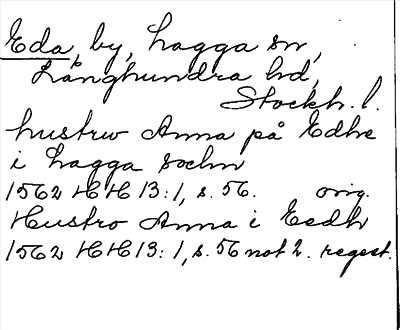 Eda, by, Lagga sn,
Långhundra hd,
Stockh. l.
hustrw Anna på Edhe
i Lagga sochn
1562 HH 13:1, s. 56. orig.
Hustro Anna i Eedh
1562 HH 13:1, s. 56 not 2. regest.